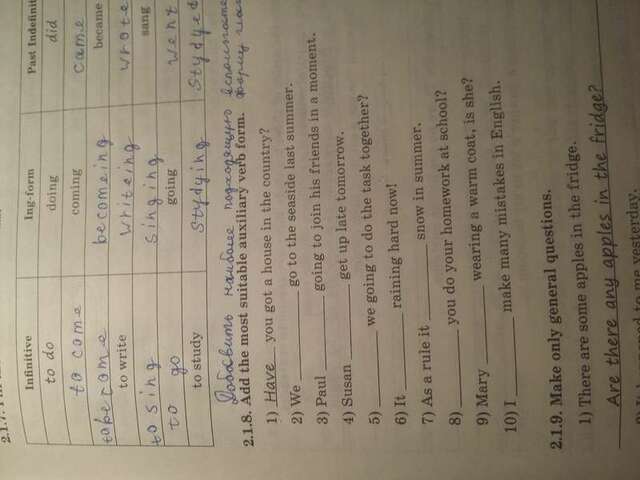 Infinitive Ing-form Past Indefinit
to do doing did
to come coming came
to become becomeing became
to write writeing wrote
to sing singing sang
to go going went
to study stydying stydyed
Добавить наиболе подходящую
2.1.8. Add the most suitable auxiliary verb form. форму
1) Have you got a house in the country?
2) We ________ go to the seaside last summer.
3) Paul ________ going to join his friends in a moment.
4) Susan ________ get up late tomorrow.
5) ________ we going to do the task together?
6) It ________ raining hard now!
7) As a rule it ________ snow in summer.
8) ________ you do your homework at school?
9) Mary ________ wearing a warm coat, is she?
10) I ________ make many mistakes in English.
2.1.9. Make only general questions.
1) There are some apples in the fridge.
Are there any apples in the fridge?
to me yesterday.